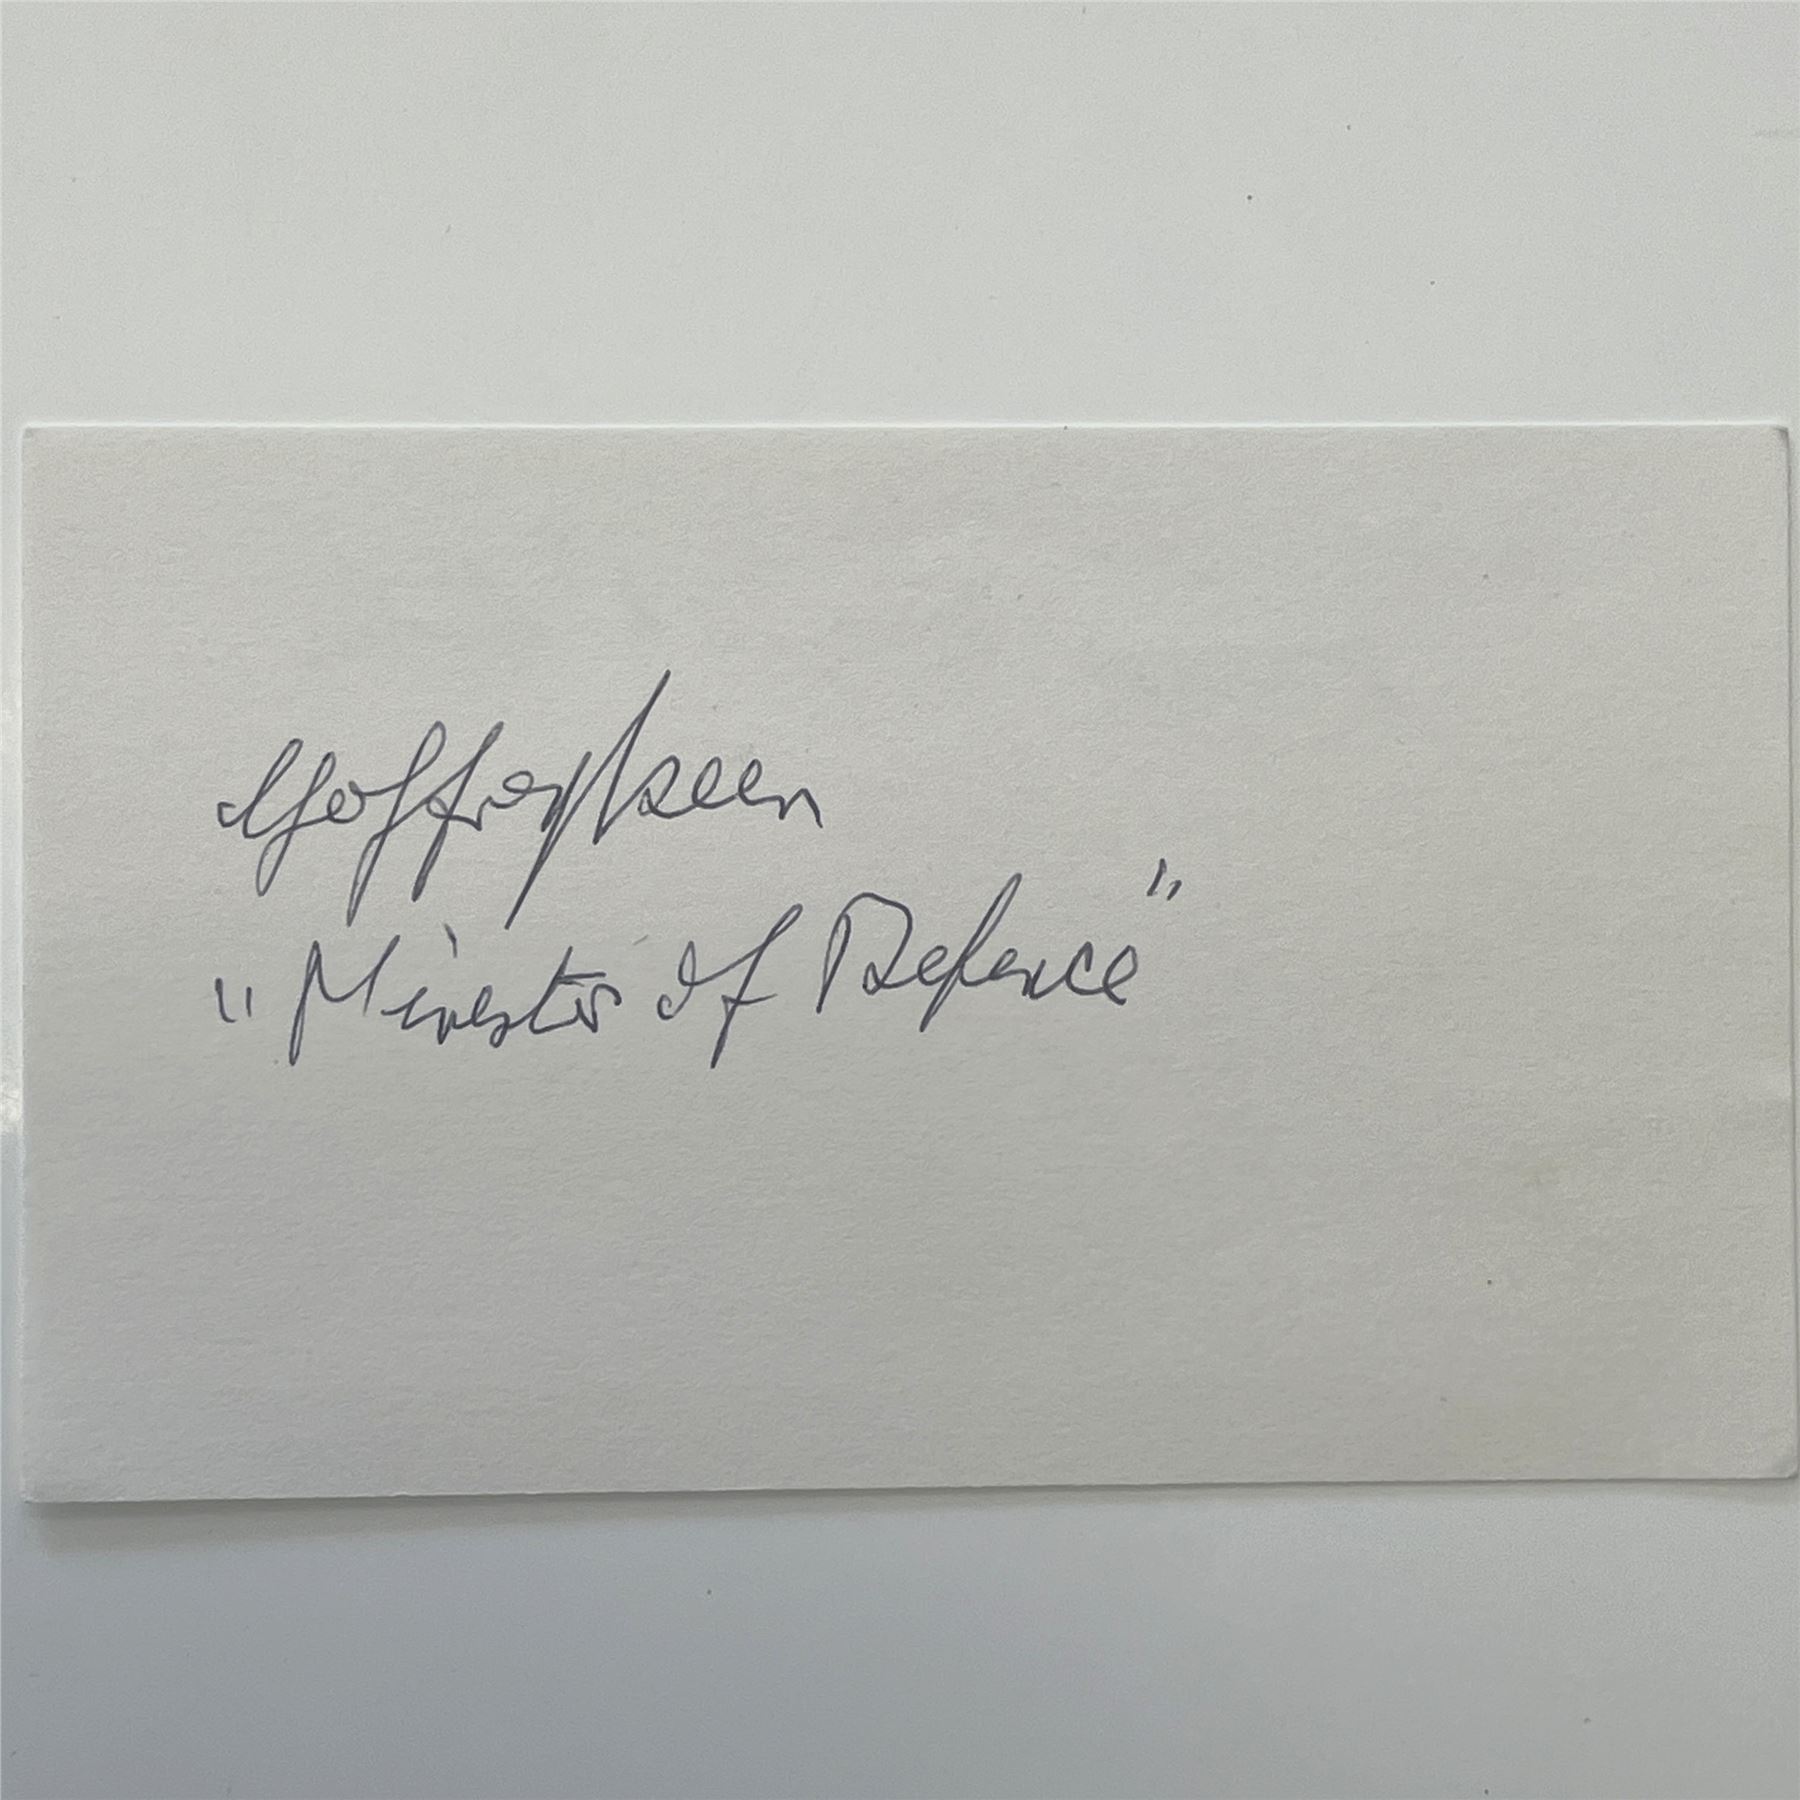 Geoffrey Keen
"Minister of Defence"